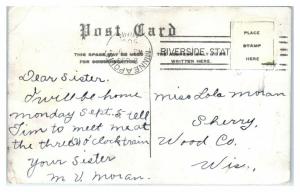 Post Card
THIS SPACE MAY BE USED
WRITTEN HERE.
PLACE
STAMP
HERE
MINNEAPO
RIVERSIDE STAT
Dear Sister.
I will be home
Monday Sept 5 tell
Tim to meet me at
the three o'clock train
your Sister
M V Moran.
Miss Lola Moran
Sherry,
Wood Co.
Wis.